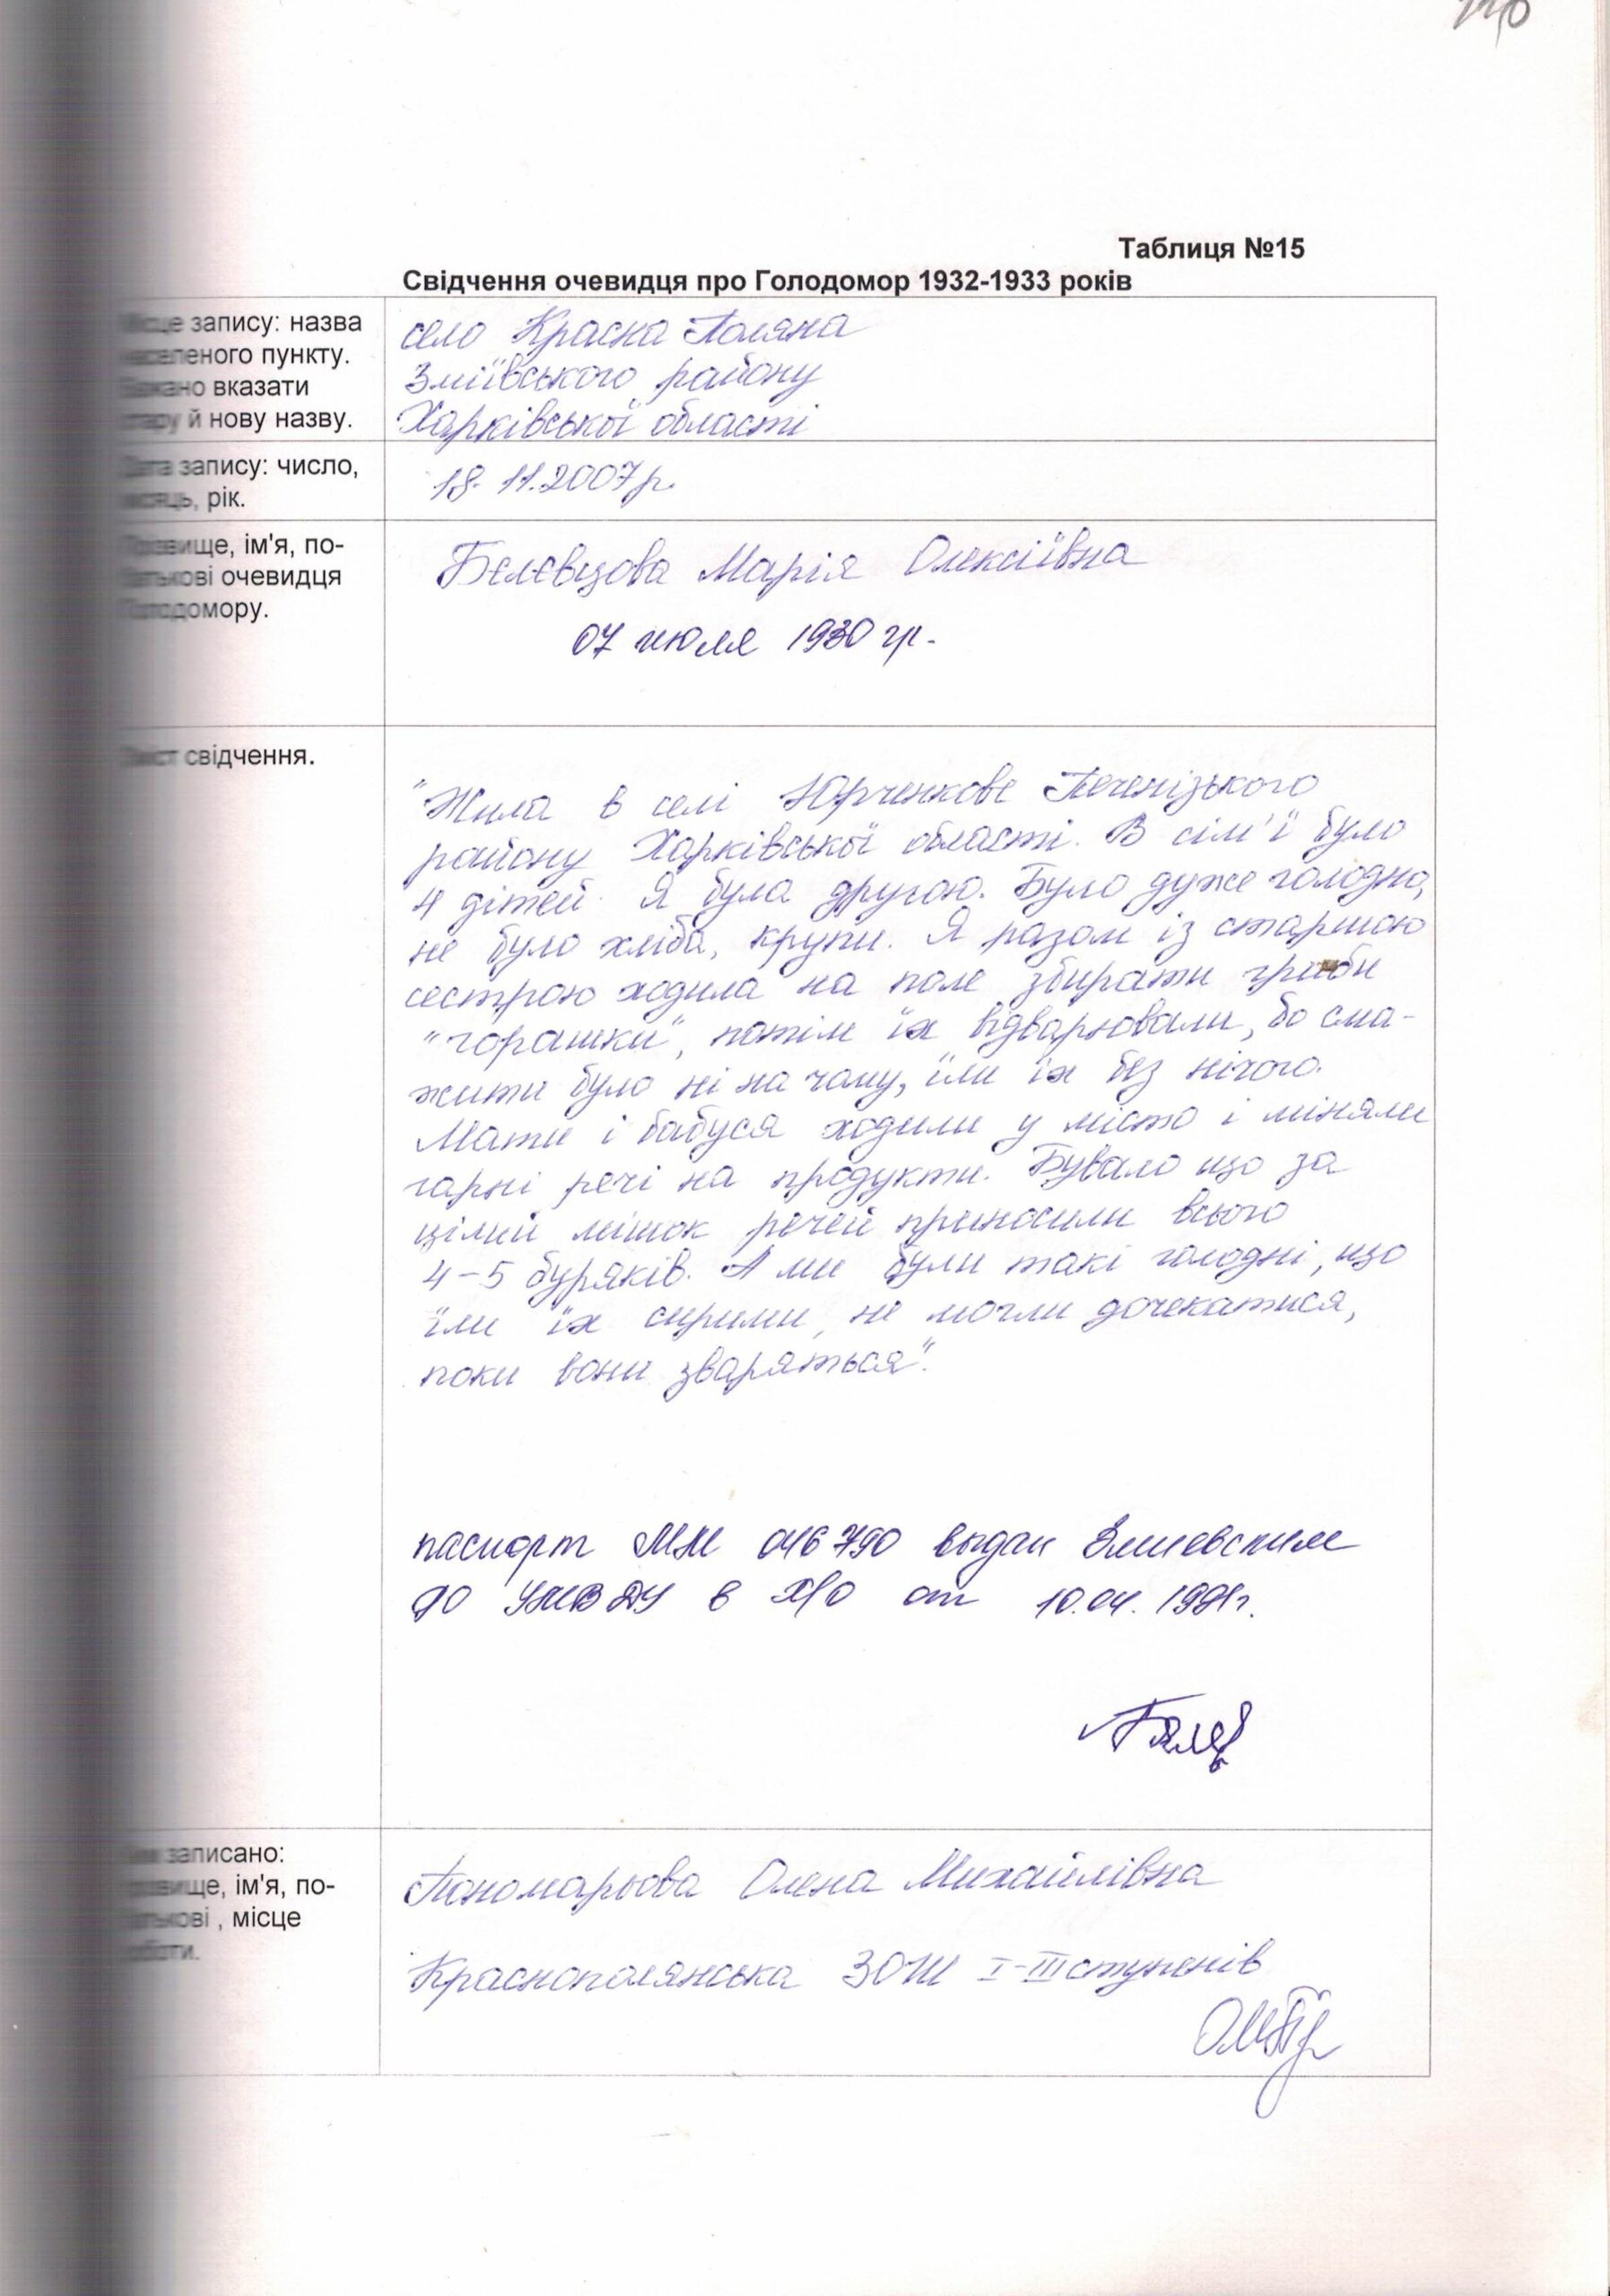 Таблиця №15
Свідчення очевидця про Голодомор 1932-1933 років
Місце запису: назва
населеного пункту.
Бажано вказати
стару й нову назву.
село Красна Поляна
Зміївського району
Харківської області
Дата запису: число,
місяць, рік.
18.11.2007р.
Прізвище, ім'я, по-
батькові очевидця
Голодомору.
Бєлєвцова Марія Олексіївна
07 июля 1930 гр.
Зміст свідчення.
"Жила в селі Юрченкове Печенізького
району Харківської області. В сім'ї було
4 дітей. Я була другою. Було дуже голодно,
не було хліба, крупи. Я разом із старшою
сестрою ходила на поле збирати гриби
"горашки", потім їх відварювали, бо сма-
жити було ні на чому, їли їх без нічого.
Мати і бабуся ходили у місто і міняли
гарні речі на продукти. Бувало що за
цілий мішок речей приносили всього
4-5 буряків. А ми були такі голодні, що
їли їх сирими, не могли дочекатися,
поки вони зваряться".
паспорт ММ 046790 выдан Змиевским
РО УМВДУ в Х/О от 10.04.
Ким записано:
прізвище, ім'я, по-
батькові , місце
роботи.
Пономарьова Олена Михайлівна
Краснополянська ЗОШ I-III ступенів